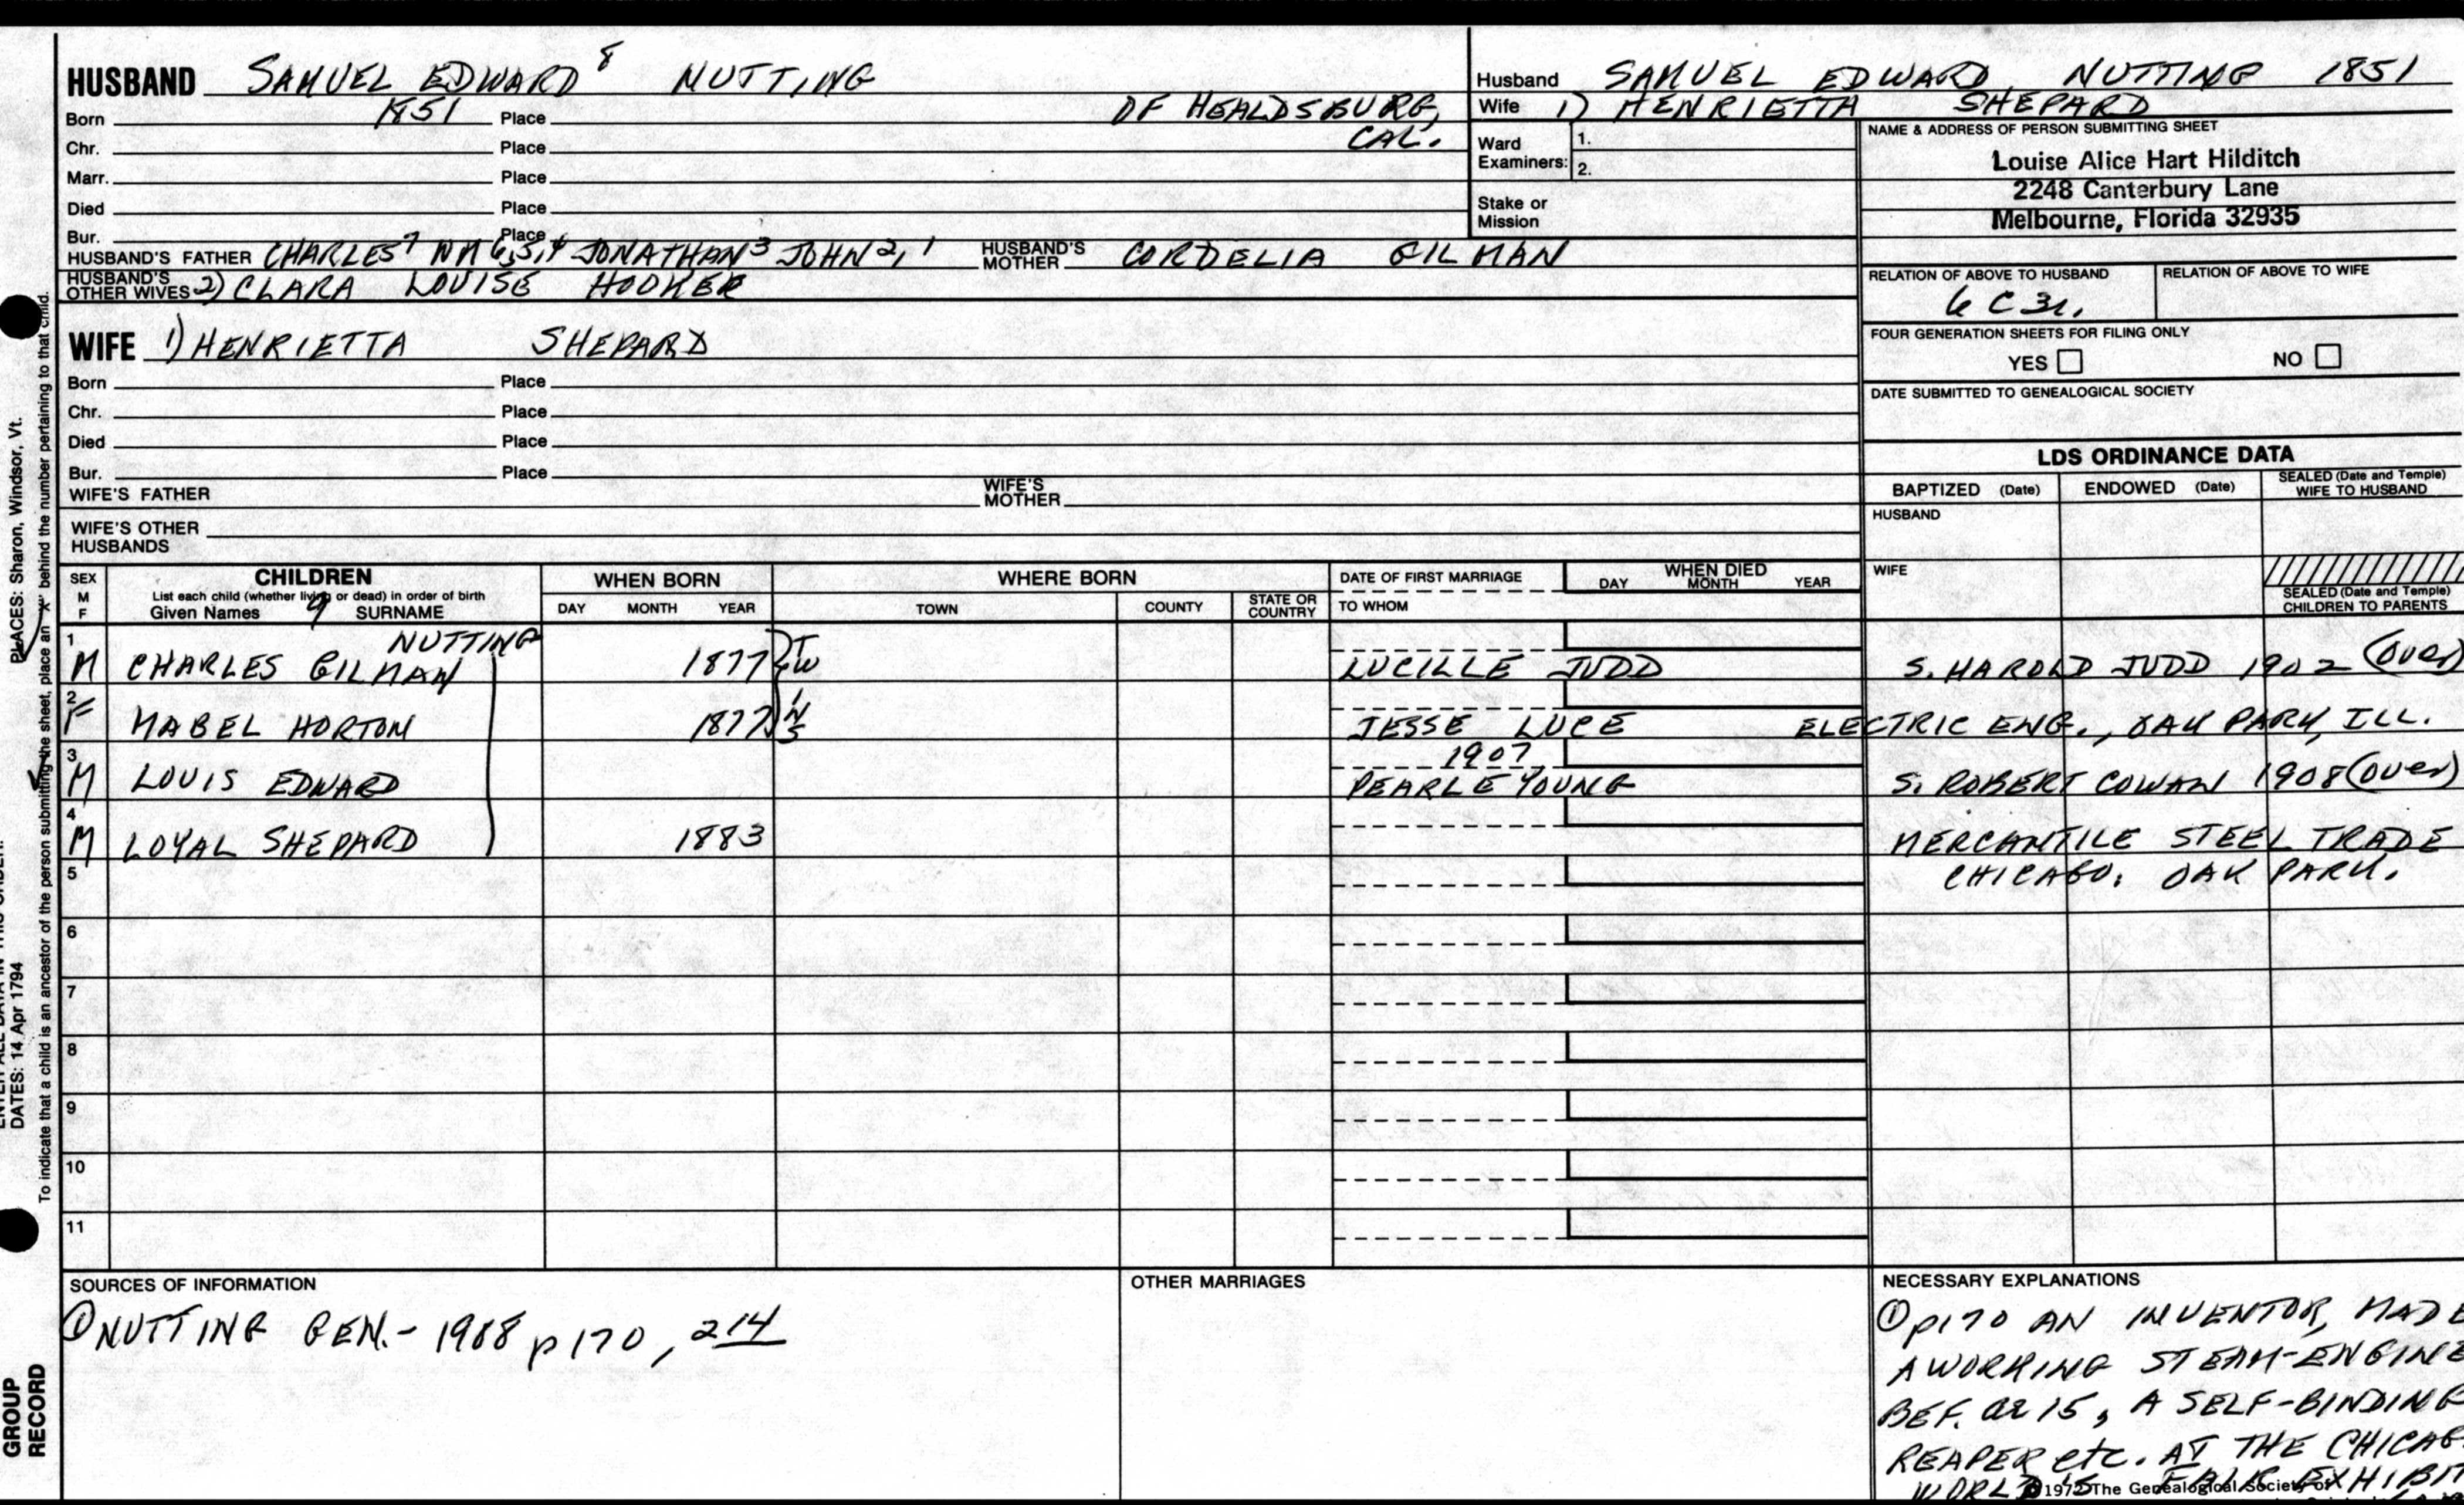 HUSBAND SAMUEL EDWARD 8 NUTTING
Born 1851 Place OF HEALDSBURG,
Chr. Place CAL.
Marr. Place
Died Place
Bur. Place
HUSBAND'S FATHER CHARLES 7 WM 6,5,4 JONATHAN 3 JOHN 2,1 HUSBAND'S MOTHER CORDELIA GILMAN
HUSBAND'S OTHER WIVES 2) CLARA LOUISE HOOKER
WIFE 1) HENRIETTA SHEPARD
Born Place
Chr. Place
Died Place
Bur. Place
WIFE'S FATHER WIFE'S MOTHER
WIFE'S OTHER HUSBANDS
Husband SAMUEL EDWARD NUTTING 1851
Wife 1) HENRIETTA SHEPARD
Ward Examiners: 1.
2.
Stake or Mission
NAME & ADDRESS OF PERSON SUBMITTING SHEET
Louise Alice Hart Hilditch
2248 Canterbury Lane
Melbourne, Florida 32935
RELATION OF ABOVE TO HUSBAND RELATION OF ABOVE TO WIFE
6 C 3r.
FOUR GENERATION SHEETS FOR FILING ONLY
YES NO
DATE SUBMITTED TO GENEALOGICAL SOCIETY
LDS ORDINANCE DATA
BAPTIZED (Date) ENDOWED (Date) SEALED (Date and Temple) WIFE TO HUSBAND
HUSBAND
WIFE
SEALED (Date and Temple) CHILDREN TO PARENTS
SEX M F CHILDREN WHEN BORN WHERE BORN DATE OF FIRST MARRIAGE WHEN DIED
List each child (whether living or dead) in order of birth
Given Names 9 SURNAME DAY MONTH YEAR TOWN COUNTY STATE OR COUNTRY TO WHOM DAY MONTH YEAR
1 NUTTING
M CHARLES GILMAN 1877 TW LUCILLE JUDD S. HAROLD JUDD 1902 (over)
2
F MABEL HORTON 1877 INS JESSE LUCE ELECTRIC ENG., OAK PARK, ILL.
3 1907
M LOUIS EDWARD PEARLE YOUNG S. ROBERT COWAN 1908 (over)
4
M LOYAL SHEPARD 1883 MERCANTILE STEEL TRADE
5 CHICAGO. OAK PARK.
6
7
8
9
10
11
SOURCES OF INFORMATION
① NUTTING GEN.- 1908 p 170, 214
OTHER MARRIAGES
NECESSARY EXPLANATIONS
① p170 AN INVENTOR, MADE
A WORKING STEAM-ENGINE
BEF. ae 15, A SELF-BINDING
REAPER etc. AT THE CHICAG
WORLD'S FAIR EXHIBIT
©1972 The Genealogical Society of
PLACES: Sharon, Windsor, Vt.
DATES: 14 Apr 1794
To indicate that a child is an ancestor of the person submitting the sheet, place an "X" behind the number pertaining to that child.
GROUP
RECORD